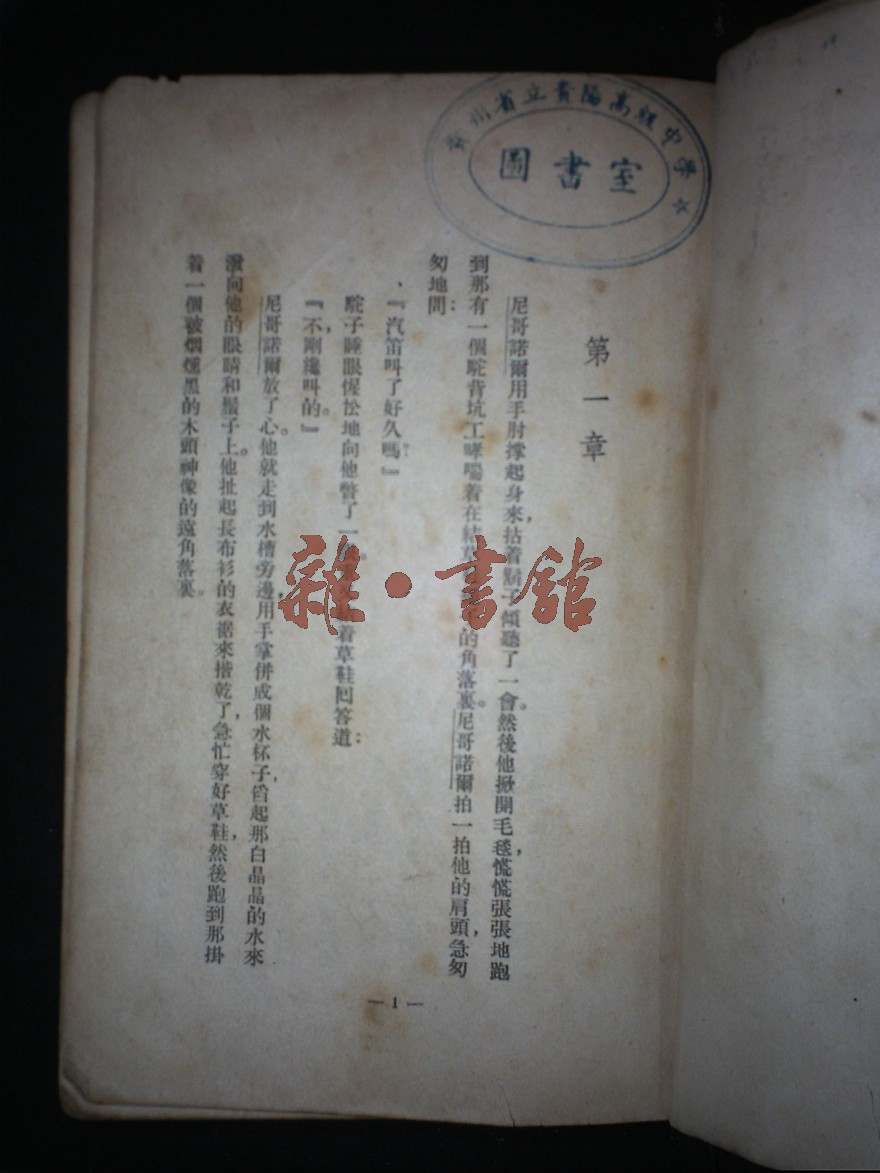 貴州省立貴陽高級中學
圖書室
第一章
尼哥諾爾用手肘撑起身來，拈着鬍子傾聽了一會。然後他掀開毛毯，慌慌張張地跑
到那有一個駝背坑工哮喘着在結草鞋的角落裏。尼哥諾爾拍一拍他的肩頭，急匆
匆地問：
『汽笛叫了好久嗎？』
駝子睡眼惺忪地向他瞥了一眼，着草鞋回答道：
『不，剛纔叫的。』
尼哥諾爾放了心。他就走到水槽旁邊，用手掌併成個水杯子，舀起那白晶晶的水來
潑向他的眼睛和鬍子上。他扯起長布衫的衣裾來揩乾了，急忙穿好草鞋，然後跑到那掛
着一個被烟燻黑的木頭神像的遠角落裏。
— 1 —
雜·書館